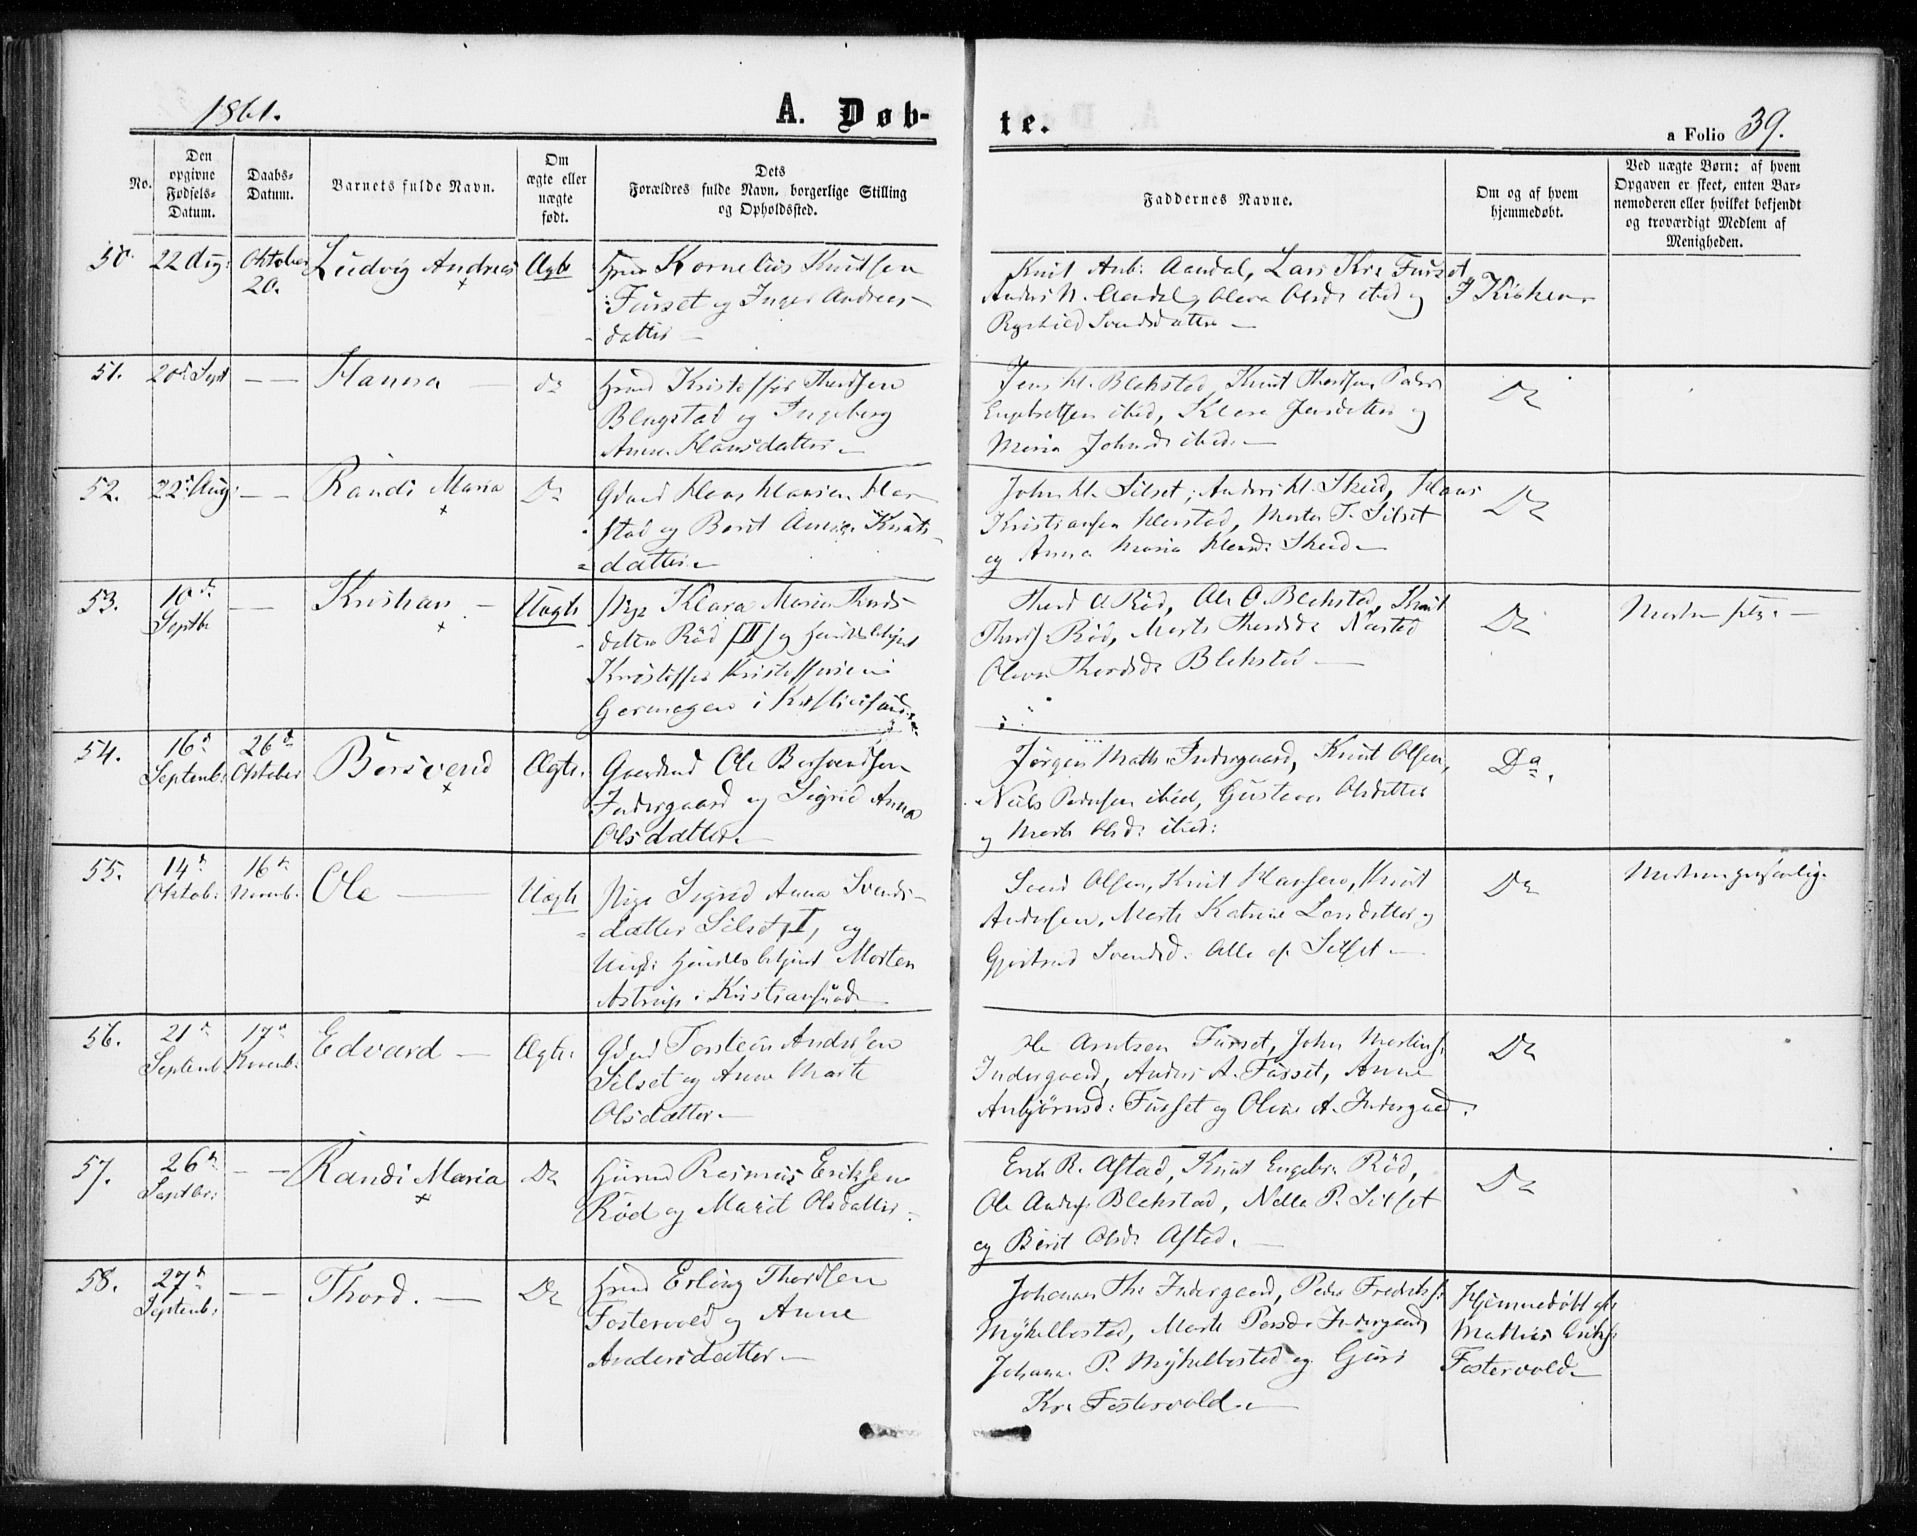 1861.
A. Døb-
te.
a Folio 39.
No.
Den opgivne Fødsels-Datum.
Daabs-Datum.
Barnets fulde Navn.
Om ægte eller uægte født.
Dets Forældres fulde Navn, borgerlige Stilling og Opholdssted.
Faddernes Navne.
Om og af hvem hjemmedøbt.
Ved uægte Børn: af hvem Opgaven er skeet, enten Barnemoderen eller hvilket bekjendt og troværdigt Medlem af Menigheden.
50. 22 Aug: Oktober 20. Ludvig Andreas Ægte
Kornelius Knudsen
Furset og Inger Andreas-
datter
Knut Anb: Aandal, Lars Kr. Furset
Anders N. Aandal, Olava Olsd: ibid og
Ragnhild Svendsdatter
I Kirken
51. 20de Sept — — Hanna — Do
Hmd Kristoffer Thordsen
Blegstad og Ingeborg
Anne Hansdatter
Jens H. Blekstad, Knut Thordsen, Peder
Engebretsen ibid, Klara Jensdatter og
Maria Johnsd: ibid:
Do
52. 22de Aug: — — Randi Maria Do
Gdmd Hans Hansen Har-
stad og Berit Anna Knuts-
datter
John H. Silset, Anders H. Skeid, Hans
Kristiansen Harstad, Marta T. Silset
og Anna Maria Hansd: Skeid
Do
53. 10de Septbr — — Kristian — Uægte
Pige Klara Maria Thords-
datter Rød [II] og
Kristoffer Kristoffersen
i Kristiansund
Thord A Rød, Ole O. Blekstad, Knut
Thords: Rød, Marte Thordsd: Narstad
Olava Thordsd: Blekstad
Do
Moderen
54. 16de Septemb: 26de Oktober Børsvend Ægte.
Gaardmd Ole Børsvendsen
Indergaard og Sigrid Anna
Olsdatter.
Jørgen Math: Indergaard, Knut Olsen,
Niels Pedersen ibid, Gustava Olsdatter
og Marte Olsd: ibid:
Do.
55. 14de Oktob: 16de Novemb: Ole — Uægte
Pige Sigrid Anna Svends-
datter Silset, I, og
Ungk: Morten
Astrup i Kristiansund
Svend Olsen, Knut Hansen, Knut
Andersen, Marte Katrine Larsdatter og
Gjertrud Svendsd: Alle af Silset
Do
Moderen personlig.
56. 21de Septemb 17de Novemb: Edvard — Ægte:
Gdmd Torstein Andersen
Silset og Anne Marte
Olsdatter.
Ole Arntsen Furset, John Mortens:
Indergaard, Anders A. Furset, Anne
Anbjørnsd: Furset og Olina A. Indergaard.
Do
57. 26de Septbr: — — Randi Maria Do
Husmd Rasmus Eriksen
Rød og Marit Olsdatter
Erik R. Astad, Knut Engebr: Rød,
Ole Anders: Blekstad, Nella P. Silset
og Berit Olsd: Astad.
Do
58. 27de Septemb: — — Thord. — Do
Hmd Erling Thordsen
Fostervold og Anne
Andersdatter
Johannes Th: Indergaard, Peder Fredriks:
Mykelbostad, Marte Persd: Indergaard,
Johanna P. Mykelbostad og Guri
Kr: Fostervold.
Hjemmedøbt af
Mathias Eriks:
Fostervold